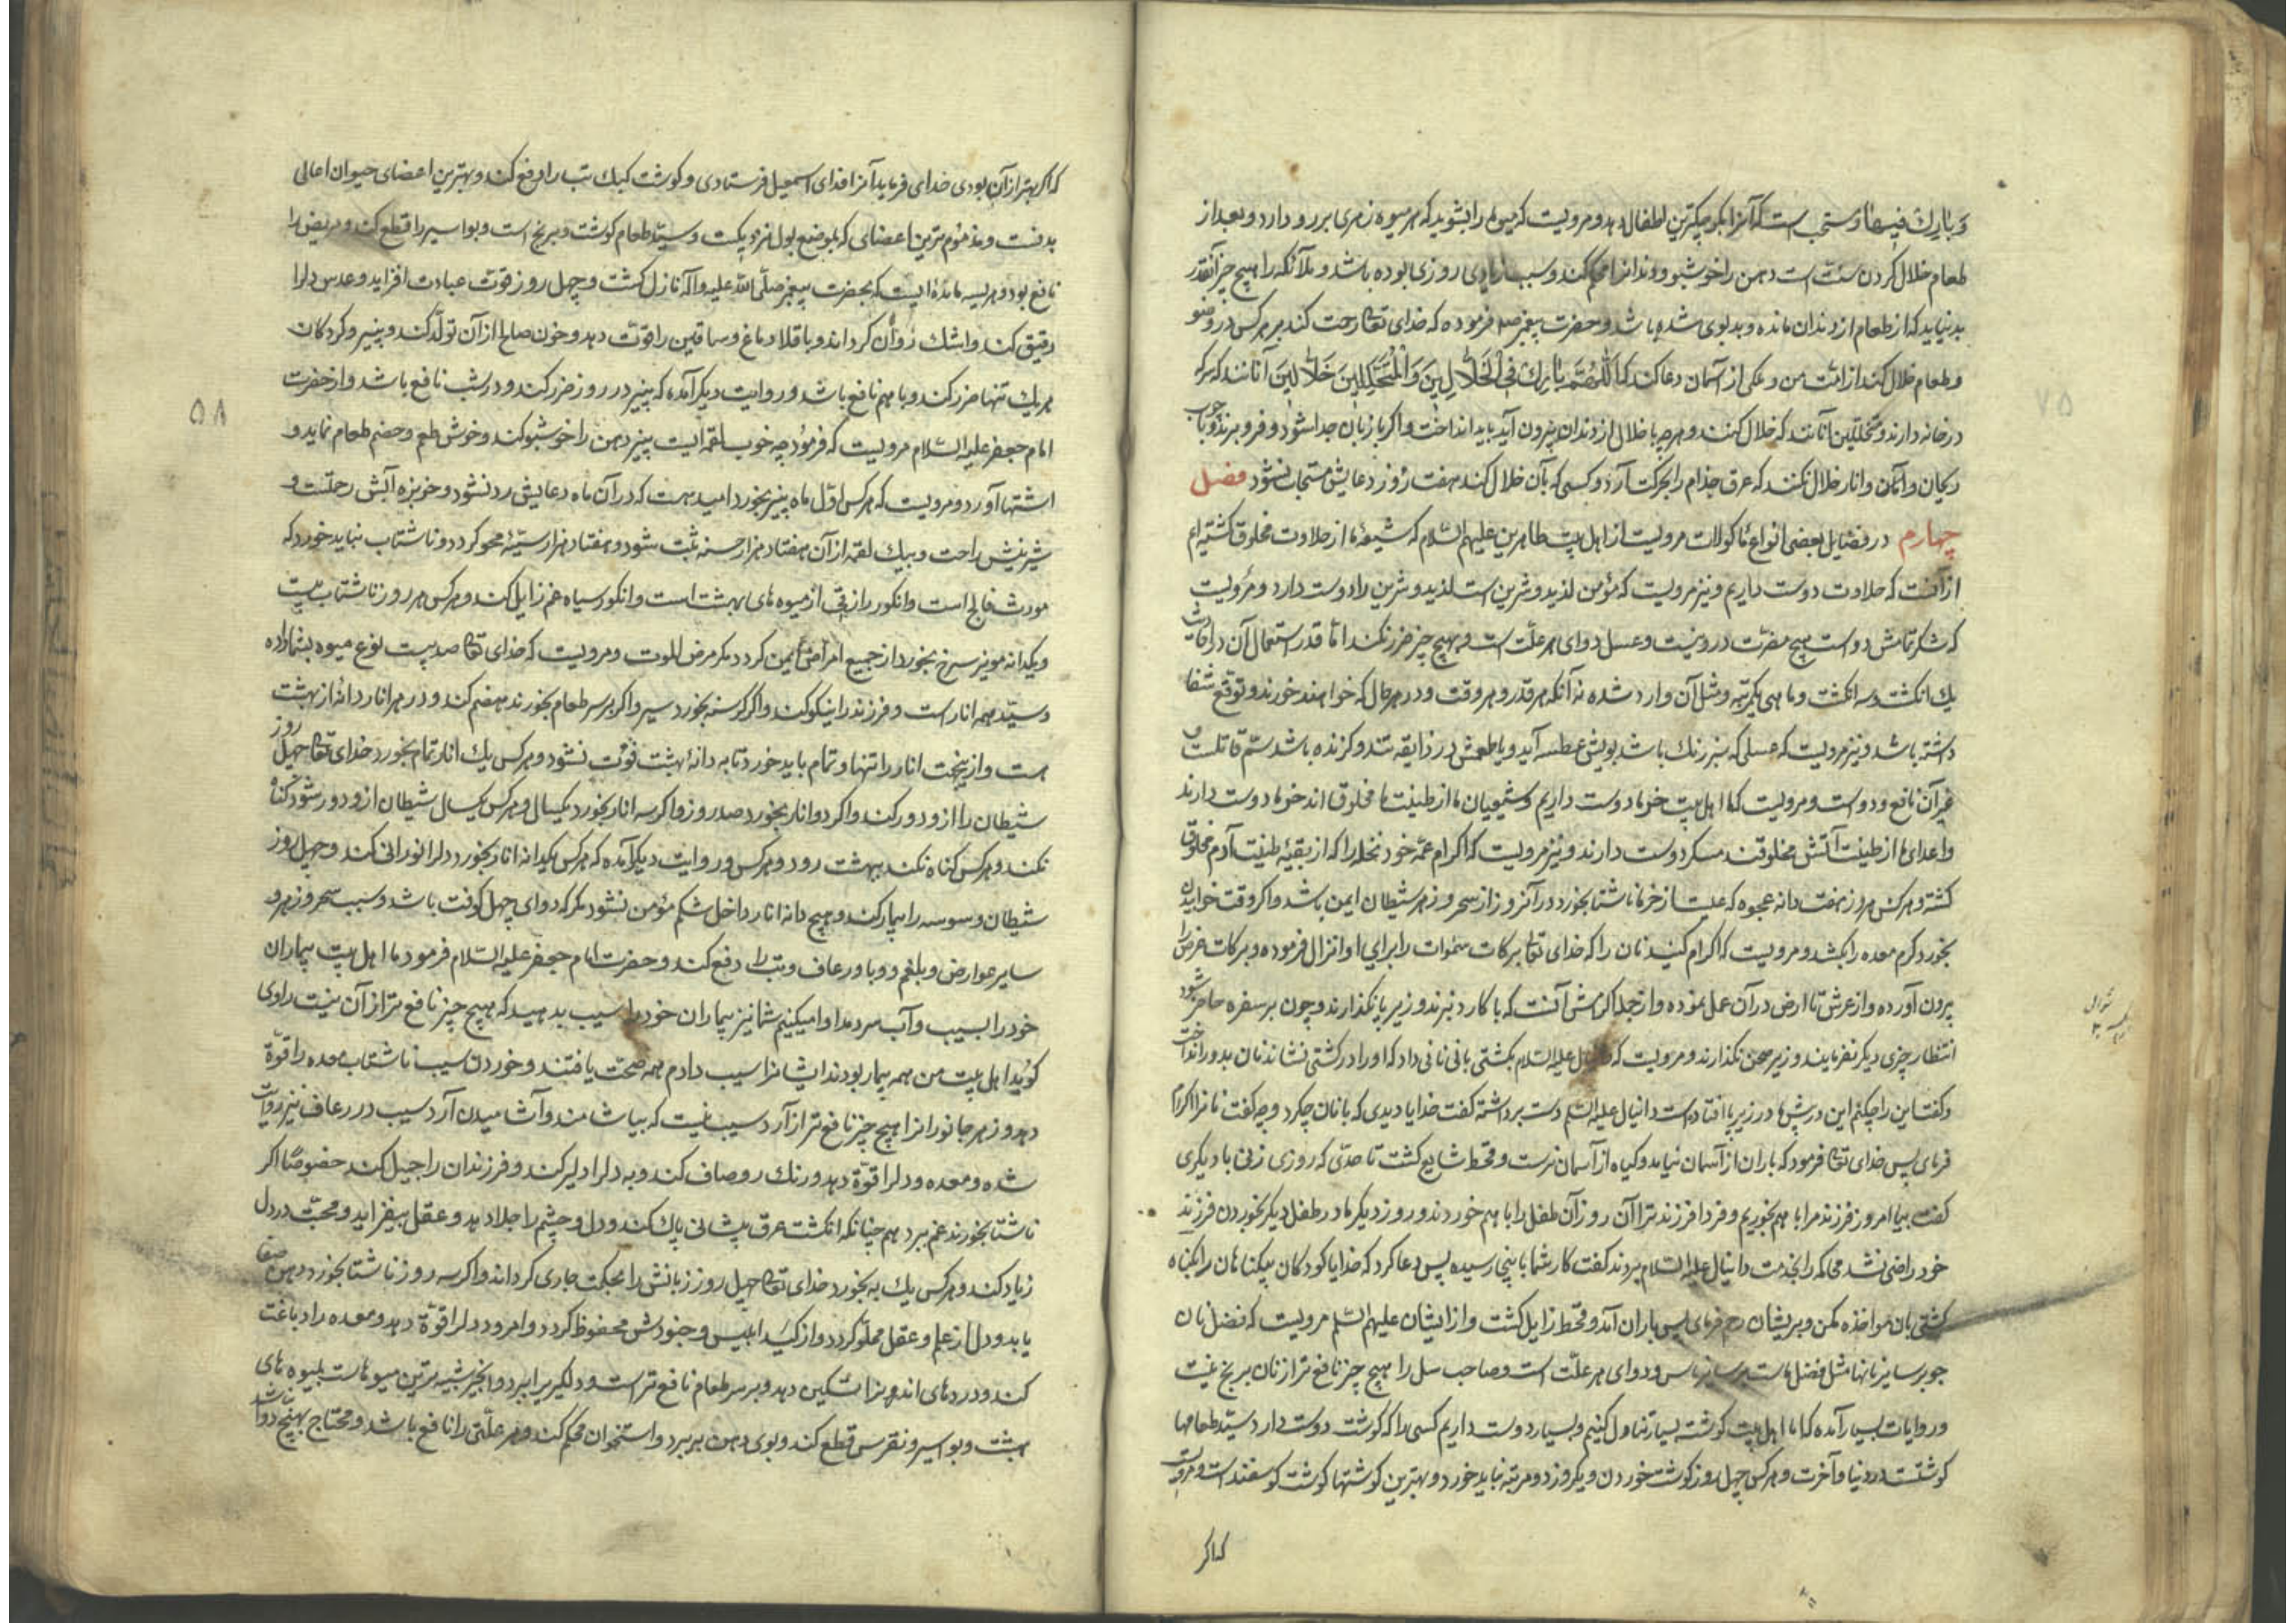 وبارك فيها و مستحب است که آنرا بکوچکترین اطفال دهد و مرویست که میوه را بشوئید که هر میوه زهری بر رو دارد و بعد از
طعام خلال کردن سنت است دهن را خوشبو و دندانرا محکم کند و سبب زیادی روزی بوده باشد و ملائکه را هیچ چیز آنقدر
بد نیاید که از طعام در دندان مانده و بدبوی شده باشد و حضرت پیغمبر ص فرموده که خدای تعالی رحمت کند بر هر کس در وضو
و طعام خلال کند از امت من و ملکی از آسمان دعا کند که اللّهُمَّ بارِك فِی الخَلّالینَ وَ المُتَخَلِّلینَ خلّالینَ آنانند که سرکه
در خانه دارند و متخللین آنانند که خلال کنند و هر چه با خلال از دندان بیرون آید باید انداخت و اگر با زبان جدا شود فرو برند و با چوب
ریحان و انار خلال نکنند که عرق جذام را بحرکت آرد و کسی که بآن خلال کند هفت روز دعایش مستجاب نشود فصل
چهارم در فضایل بعضی انواع ماکولات مرویست از اهل بیت طاهرین علیهم السلام که شیعه ما از حلاوت مخلوق گشته‌ایم
از آنست که حلاوت دوست داریم و نیز مرویست که مؤمن لذیذ و شرین است لذیذ و شرین را دوست دارد و مرویست
که شکر تمامش دواست هیچ مضرت درو نیست و عسل دوای هر علت است و بهیچ چیز ضرر نکند اما قدر استعمال آن در احادیث
یك انکشت و سه انکشت و ما هی یکمرتبه و مثل آن وارد شده نه آنکه هر قدر و هر وقت و در هر حال که خواهند خورند و توقع شفا
داشته باشد و نیز مرویست که عسلی که سبز رنك باشد بویش عطسه آید و یا طعمش در ذایقه تند و کزنده باشد سم قاتلست و
غیر آن نافع و دواست و مرویست که ما اهل بیت خرما دوست داریم و شیعیان ما از طینت ما مخلوق اند خرما دوست دارند
و اعدای ما از طینت آتش مخلوقند مسکر دوست دارند و نیز مرویست که اکرام عمه خود نخله را که از بقیه طینت آدم مخلوق
کشته و هر کس هر روز هفت دانه عجوه که علیست از خرما ناشتا بخورد در آنروز از سحر و زهر شیطان ایمن باشد و اکر وقت خوابیدن
بخورد کرم معده را بکشد و مرویست که اکرام کنید نان را که خدای تعالی برکات سموات را برای او انزال فرموده و برکات عرض را
بیرون آورده و از عرش تا ارض در آن عمل نموده و از جمله اکرامش آنست که با کارد نبرند و زیر پا نگذارند و چون بر سفره حاضر شود
انتظار چیزی دیکر نفرمایند و زیر صحن نگذارند و مرویست که دانیال علیه السلام بکشتی بانی نانی داد که او را در کشتی نشاند نان بدور انداخت
و کفت این را چکنم این در پیش ما در زیر پا افتاده است دانیال علیه السلم دست برداشته گفت خدایا دیدی که با نان چکرد و چه کفت نانرا اکرام
فرمای پس خدای تعالی فرمود که باران از آسمان نیامد و کیاه از آسمان نرست و قحط شایع کشت تا حدی که روزی زنی با دیکری
کفت بیا امروز فرزند مرا با هم بخوریم و فردا فرزند ترا آن روز آن طفل را با هم خوردند و روز دیکر مادر طفل دیکر بخوردن فرزند
خود راضی نشد محاکمه را بخدمت دانیال علیه السلام بردند گفت کار شما باینجا رسیده پس دعا کرد که خدایا کودکان بیکناهان را بکناه
کشتی بان مواخذه مکن و بریشان رحم فرمای پس باران آمد و قحط زایل کشت و از ایشان علیهم السلم مرویست که فضل نان
جو بر سایر نانها مثل فضل ماست بر سایر ناس و دوای هر علت است و صاحب سل را هیچ چیز نافع تر از نان برنج نیست
و روایات بسیار آمده که ما اهل بیت کوشت بسیار تناول کنیم و بسیار دوست داریم کسی را که کوشت دوست دارد سید طعامها
کوشتست در دنیا و آخرت و هر کس چهل روز کوشت خوردن و یکروز دو مرتبه نباید خورد و بهترین کوشتها کوشت کوسفند است و مرویست
که اکر
۷۵
که اکر بهتر از آن بودی خدای فرماید آنرا فدای اسمعیل فرستادی و کوشت کبك تب را دفع کند و بهترین اعضای حیوان اعالی
بدنست و مذموم ترین اعضای که بموضع بول نزدیکست و سید طعام کوشت و برنج است و بواسیر را قطع کند و مریض را
نافع بود و هریسه مائده ایست که بحضرت پیغمبر صلّی الله علیه و آله نازل کشت و چهل روز قوت عبادت افزاید و عدس دل را
رقیق کند و اشك روان کرداند و باقلا دماغ و ساقین را قوت دهد و خون صالح از آن تولد کند و پنیر و کردکان
هریك تنها ضرر کند و با هم نافع باشد و روایت دیکر آمده که پنیر در روز ضرر کند و در شب نافع باشد و از حضرت
امام جعفر علیه السلام مرویست که فرمود چه خوب لقمه ایست پنیر دهن را خوشبو کند و خوش طعم و هضم طعام نماید و
اشتها آورد و مرویست که هر کس اول ماه پنیر بخورد امید هست که در آن ماه دعایش رد نشود و خربزه آبش رحمتست و
شرینش راحت و بیك لقمه از آن هفتاد هزار حسنه ثبت شود و هفتاد هزار سیئه محو کردد و ناشتاب نباید خورد که
مورث فالج است و انکور رازقی از میوه های بهشت است و انکور سیاه غم زایل کند و هر کس هر روز ناشتاب بیست
و یکدانه مویز سرخ بخورد از جمیع امراض ایمن کردد مکر مرض الموت و مرویست که خدای تعالی صد بیست نوع میوه بشما داده
و سید همه انار است و فرزند را نیکو کند و اکر کرسنه بخورد سیر و اکر بر سر طعام بخورند هضم کند و در هر انار دانهٔ از بهشت
هست و از پنجهت انار را تنها و تمام باید خورد تا به دانهٔ بهشت فوت نشود و هر کس یك انار تمام بخورد خدای تعالی چهل روز
شیطان را از و دور کند و اکر دو انار بخورد صد روز و اکر سه انار بخورد یکسال و هر کس یکسال شیطان از و دور شود کناه
نکند و هر کس کناه نکند ببهشت رود و هر کس و روایت دیکر آمده که هر کس یکدانه انار بخورد دلرا نورانی کند و چهل روز
شیطان و سوسه را بیمار کند و هیچ دانه انار داخل شکم مؤمن نشود مکر که دوای چهل کوفت باشد و سیب سحر و زهر و
سایر عوارض و بلغم و وبا و رعاف و تب را دفع کند و حضرت امام جعفر علیه السلام فرمود ما اهل بیت بیماران
خود را بسیب و آب سرد مداوا میکنیم شما نیز بیماران خود را سیب بدهید که هیچ چیز نافع تر از آن نیست راوی
کوید اهل بیت من همه بیمار بودند ایشانرا سیب دادم همه صحت یافتند و خوردن سیب ناشتاب معده را قوة
دهد و زهر جانورانرا هیچ چیز نافع تر از آرد سیب نیست که بیاشامند و آشامیدن آرد سیب در رعاف نیز روایت
شده و معده و دلرا قوة دهد و رنك رو صاف کند و به دلرا دلیر کند و فرزندان را جمیل کند خصوصًا اکر
ناشتا بخورند غم ببرد هم چنانکه انکشت عرق پیشانی پاك کند و دل و چشم را جلا دهد و عقل بیفزاید و محبت در دل
زیاد کند و هر کس یك به بخورد خدای تعالی چهل روز زبانش را بحکمت جاری کرداند و اکر سه روز ناشتا بخورد ذهن صفا
یابد و دل از علم و عقل مملو کردد و از کید ابلیس و جنودش محفوظ کردد و امرود دلرا قوة دهد و معده را دباغت
کند و دردهای اندرونرا تسکین دهد و بر سر طعام نافع تر است و دلکیری را ببرد و انجیر شبیه ترین میوهاست بمیوه های
بهشت و بواسیر و نقرس قطع کند و بوی دهن ببرد و استخوان محکم کند و هر علتی را نافع باشد و محتاج بهیچ دوا نباشد
۵۸